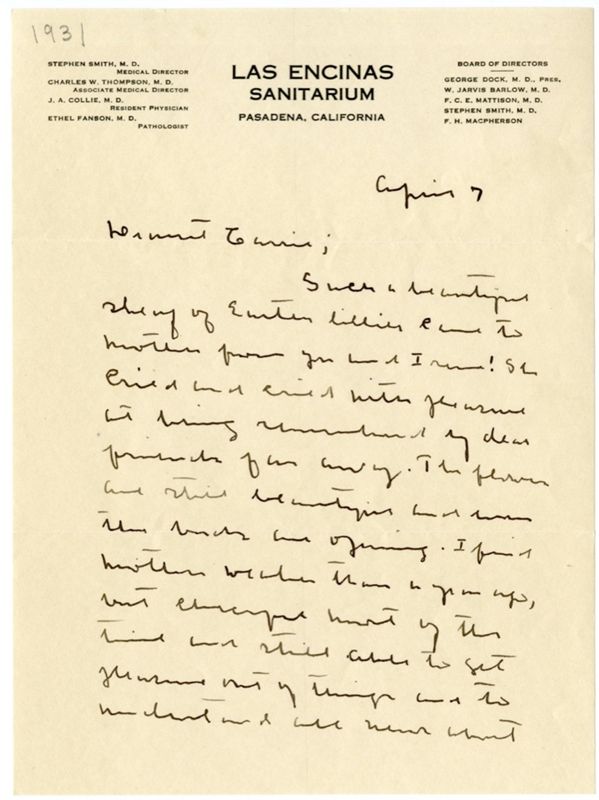 1931
STEPHEN SMITH, M. D.
MEDICAL DIRECTOR
CHARLES W. THOMPSON, M. D.
ASSOCIATE MEDICAL DIRECTOR
J. A. COLLIE, M. D.
RESIDENT PHYSICIAN
ETHEL FANSON, M. D.
PATHOLOGIST
LAS ENCINAS
SANITARIUM
PASADENA, CALIFORNIA
BOARD OF DIRECTORS
GEORGE DOCK, M. D., PRES.
W. JARVIS BARLOW, M. D.
F. C. E. MATTISON, M. D.
STEPHEN SMITH, M. D.
F. H. MACPHERSON
April 7
Dearest Carrie;
Such a beautiful
sheaf of Easter lillies came to
mother from you and Irene! She
cried and cried with pleasure
at being remembered by dear
friends far away. The flowers
are still beautiful and now
the buds are opening. I find
mother weaker than a year ago,
but cheerful most of the
time and still able to get
pleasure out of things and to
understand all news about